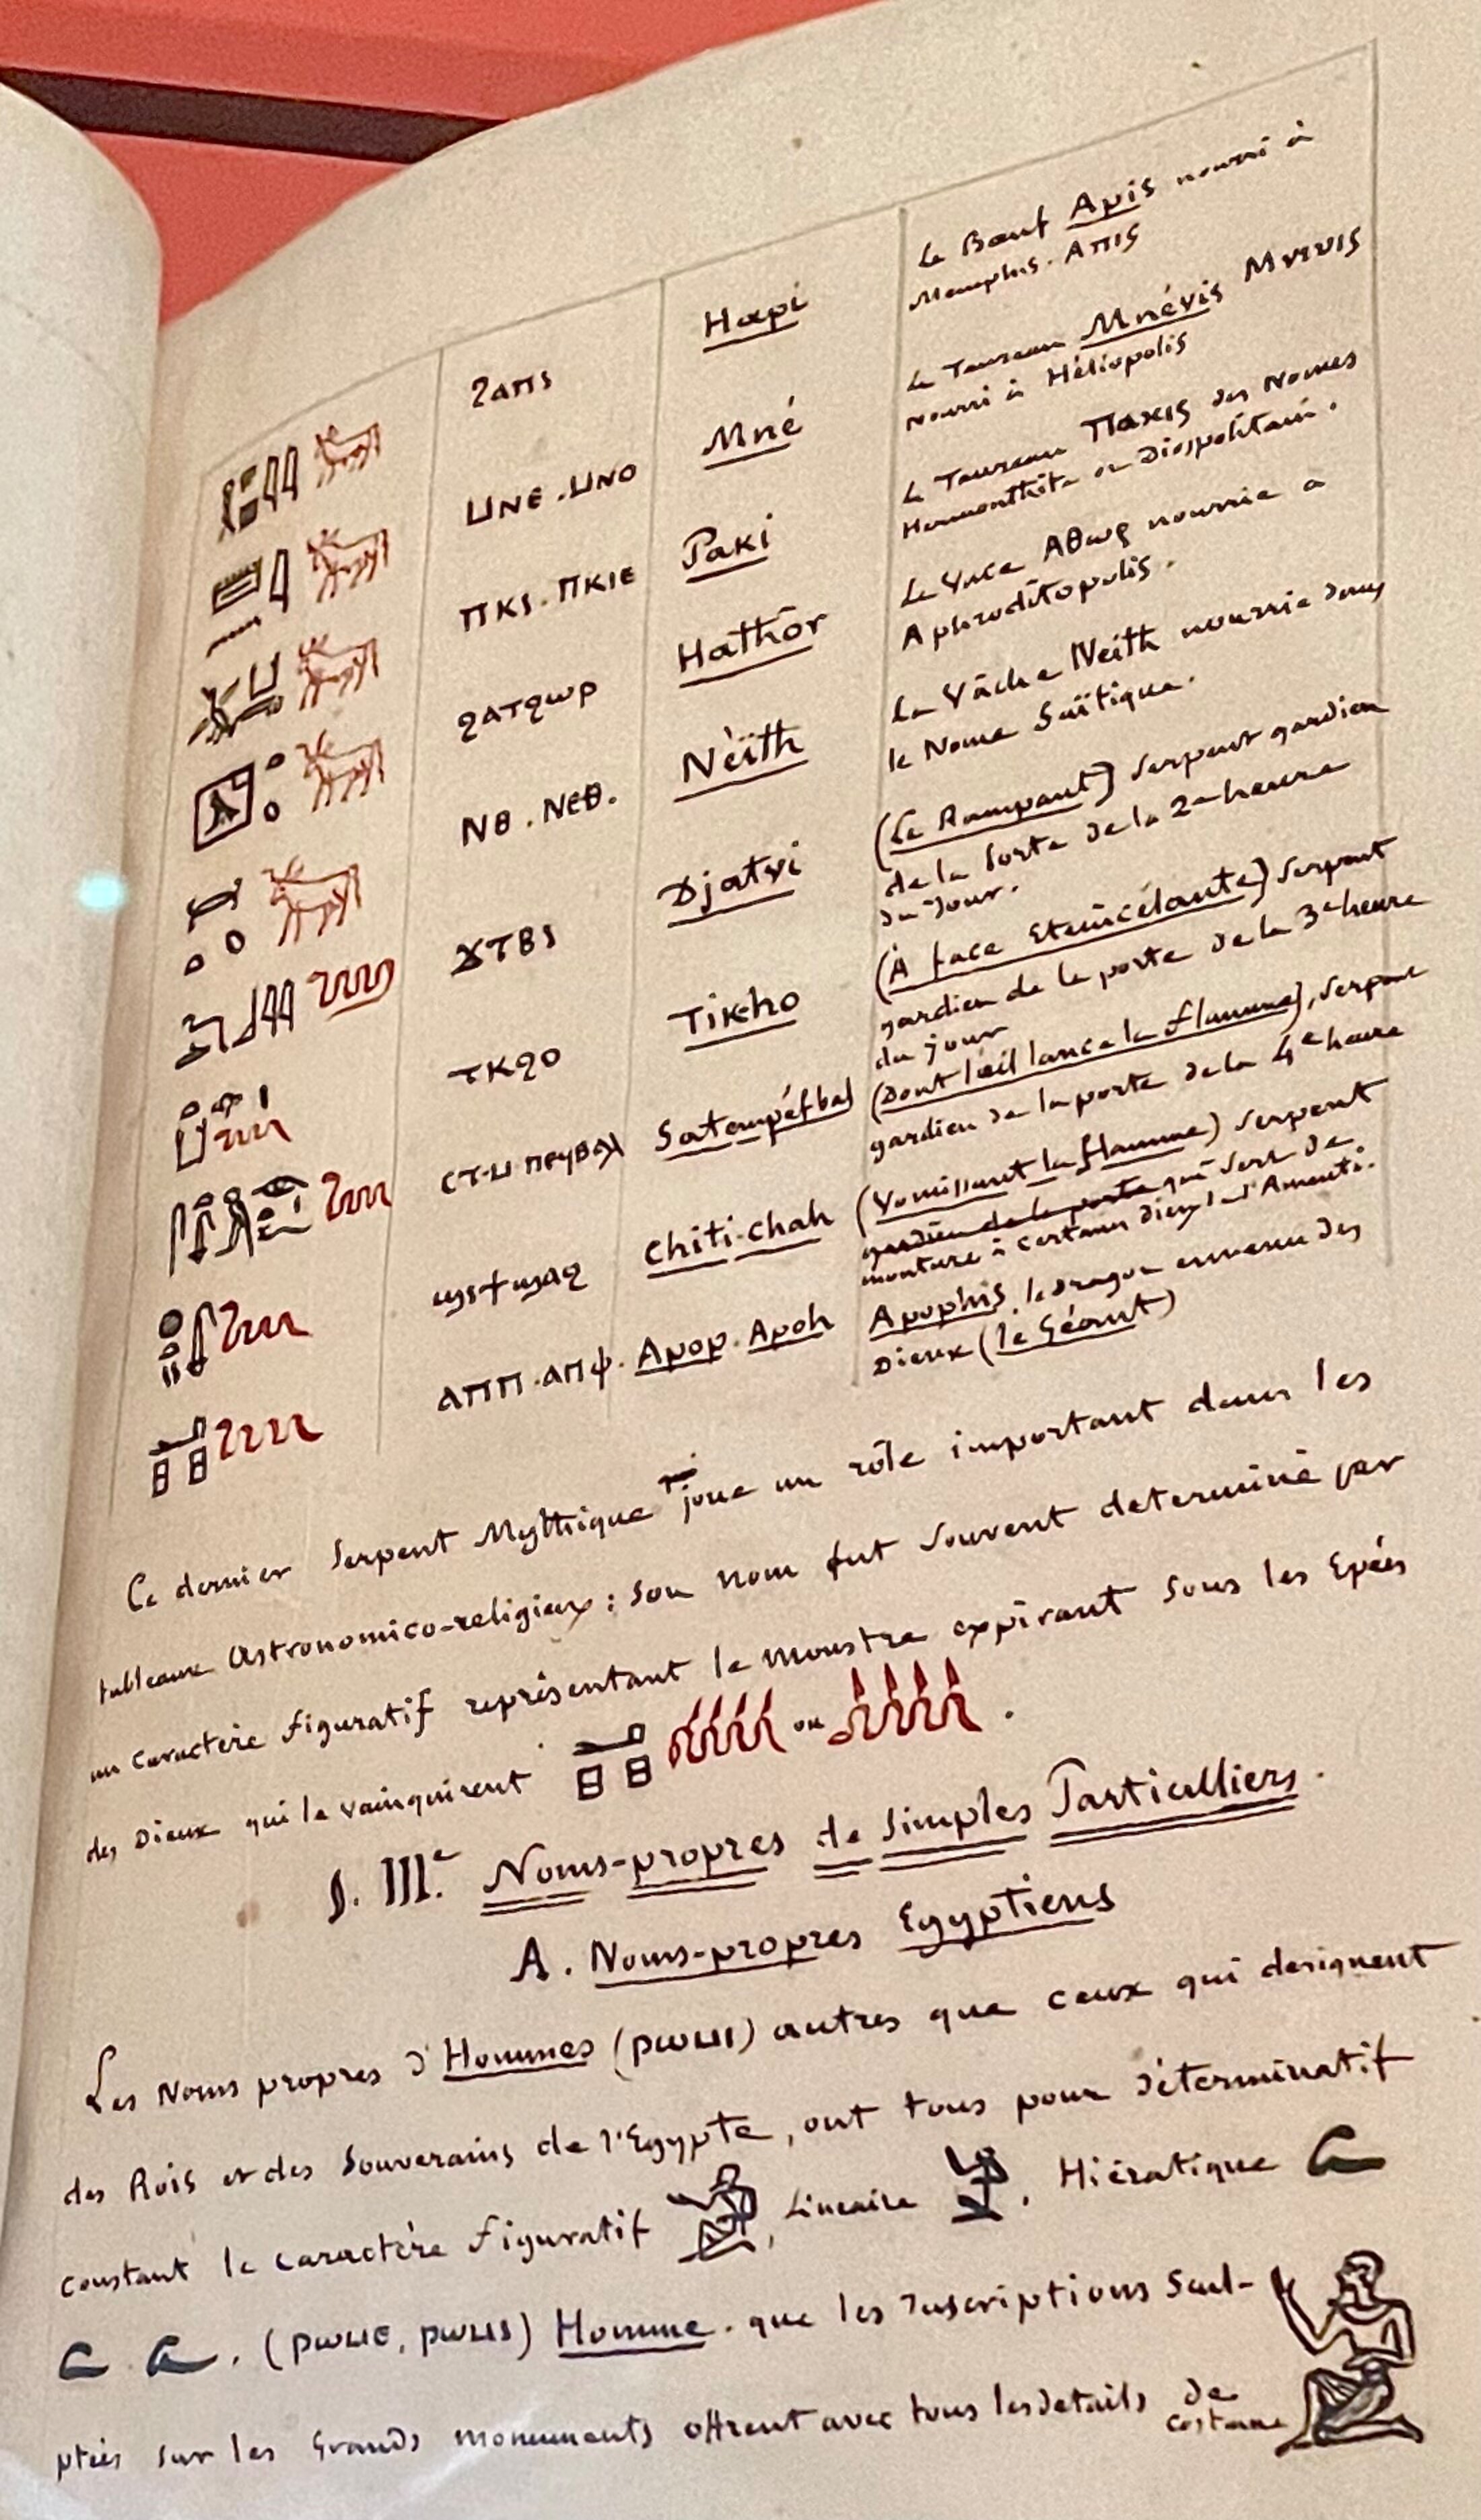 ϩⲁⲡⲓ Hapi Le Bœuf Apis nourri à
Memphis. Απις
ⲙⲛⲉ . ⲙⲛⲟ Mné Le Taureau Mnévis Μνευις
nourri à Héliopolis
ⲡⲕⲓ . ⲡⲕⲓⲉ Paki Le Taureau Πακις des Nomes
Hermonthite ou Diospolitain.
ϩⲁⲧϩⲱⲣ Hathôr La Vache Αθωρ nourrie a
Aphroditopolis.
ⲛⲑ . ⲛⲉⲑ. Nèïth La Vâche Neith nourrie dans
le Nome Saïtique.
ϫⲧⲃⲓ Djatvi (Le Rampant) Serpent gardien
de la Porte de la 2me heure
du Jour.
ⲧⲕϩⲟ Tikho (À face étincélante) Serpent
gardien de la porte de la 3e heure
du jour
ⲥⲧ-ⲙ ⲡⲉϥⲃⲁⲗ Satempéfbal (Dont l'œil lance la flamme), Serpent
gardien de la porte de la 4e heure
ϣⲓϯϣⲁϩ Chiti-chah (Vomissant la flamme) Serpent
gardien de la porte qui sert de
monture à certains dieux de l'Amenti.
ⲁⲡⲡ . ⲁⲡⲫ. Apop. Apoh Apophis, le dragon ennemi des
Dieux (le Géant)
Ce dernier Serpent Mythique joue un rôle important dans les
tableaux Astronomico-religieux : son nom fut souvent determiné par
un Caractère figuratif représentant le monstre expirant sous les Epées
des Dieux qui le vainquirent ou .
§. IIIe. Noms-propres de Simples Particulliers.
A. Noms-propres Egyptiens
Les Noms propres d'Hommes (ⲣⲱⲙⲓ) autres que ceux qui designent
des Rois et des Souverains de l'Egypte, ont tous pour déterminatif
constant le caractère figuratif , Lineaire , Hiératique
. (ⲣⲱⲙⲉ, ⲣⲱⲙⲓ) Homme. que les Inscriptions Scul-
ptées sur les Grands monuments offrent avec tous les details de
costume